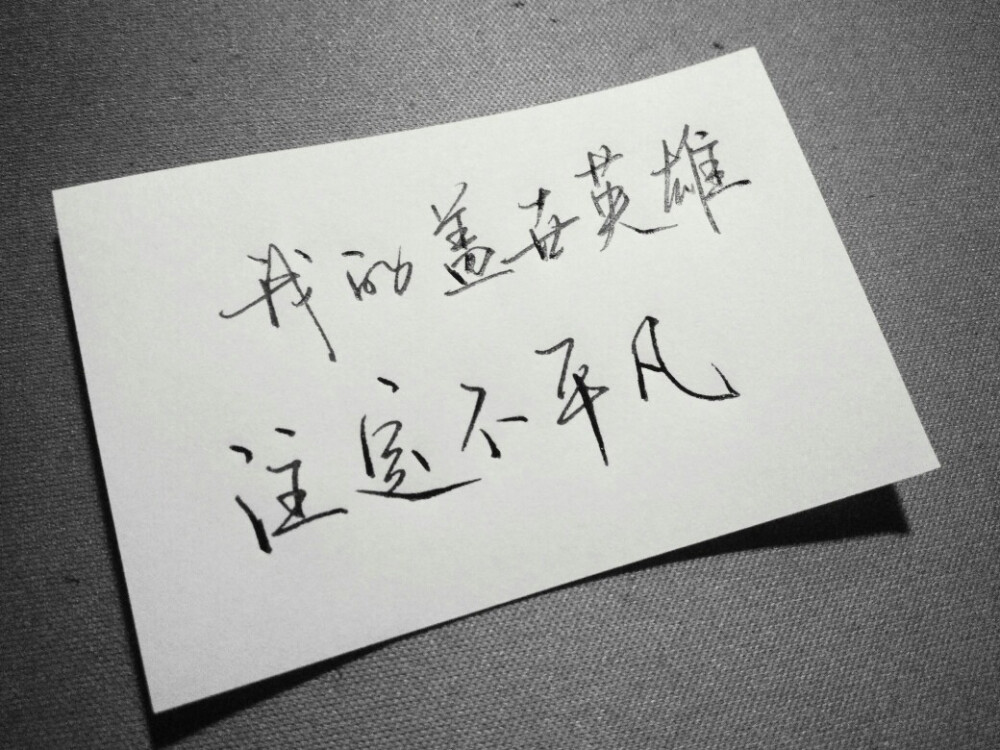 我的盖世英雄
注定不平凡